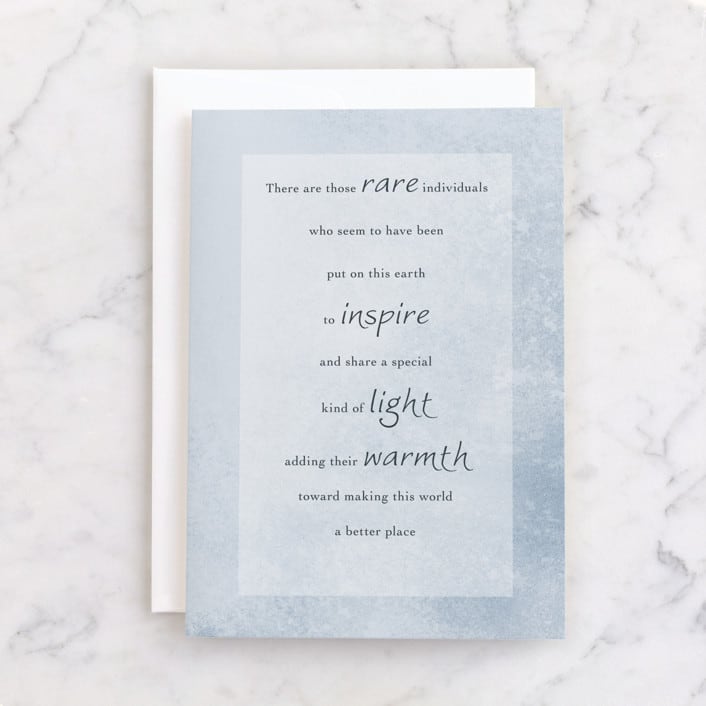 There are those rare individuals
who seem to have been
put on this earth
to inspire
and share a special
kind of light
adding their warmth
toward making this world
a better place